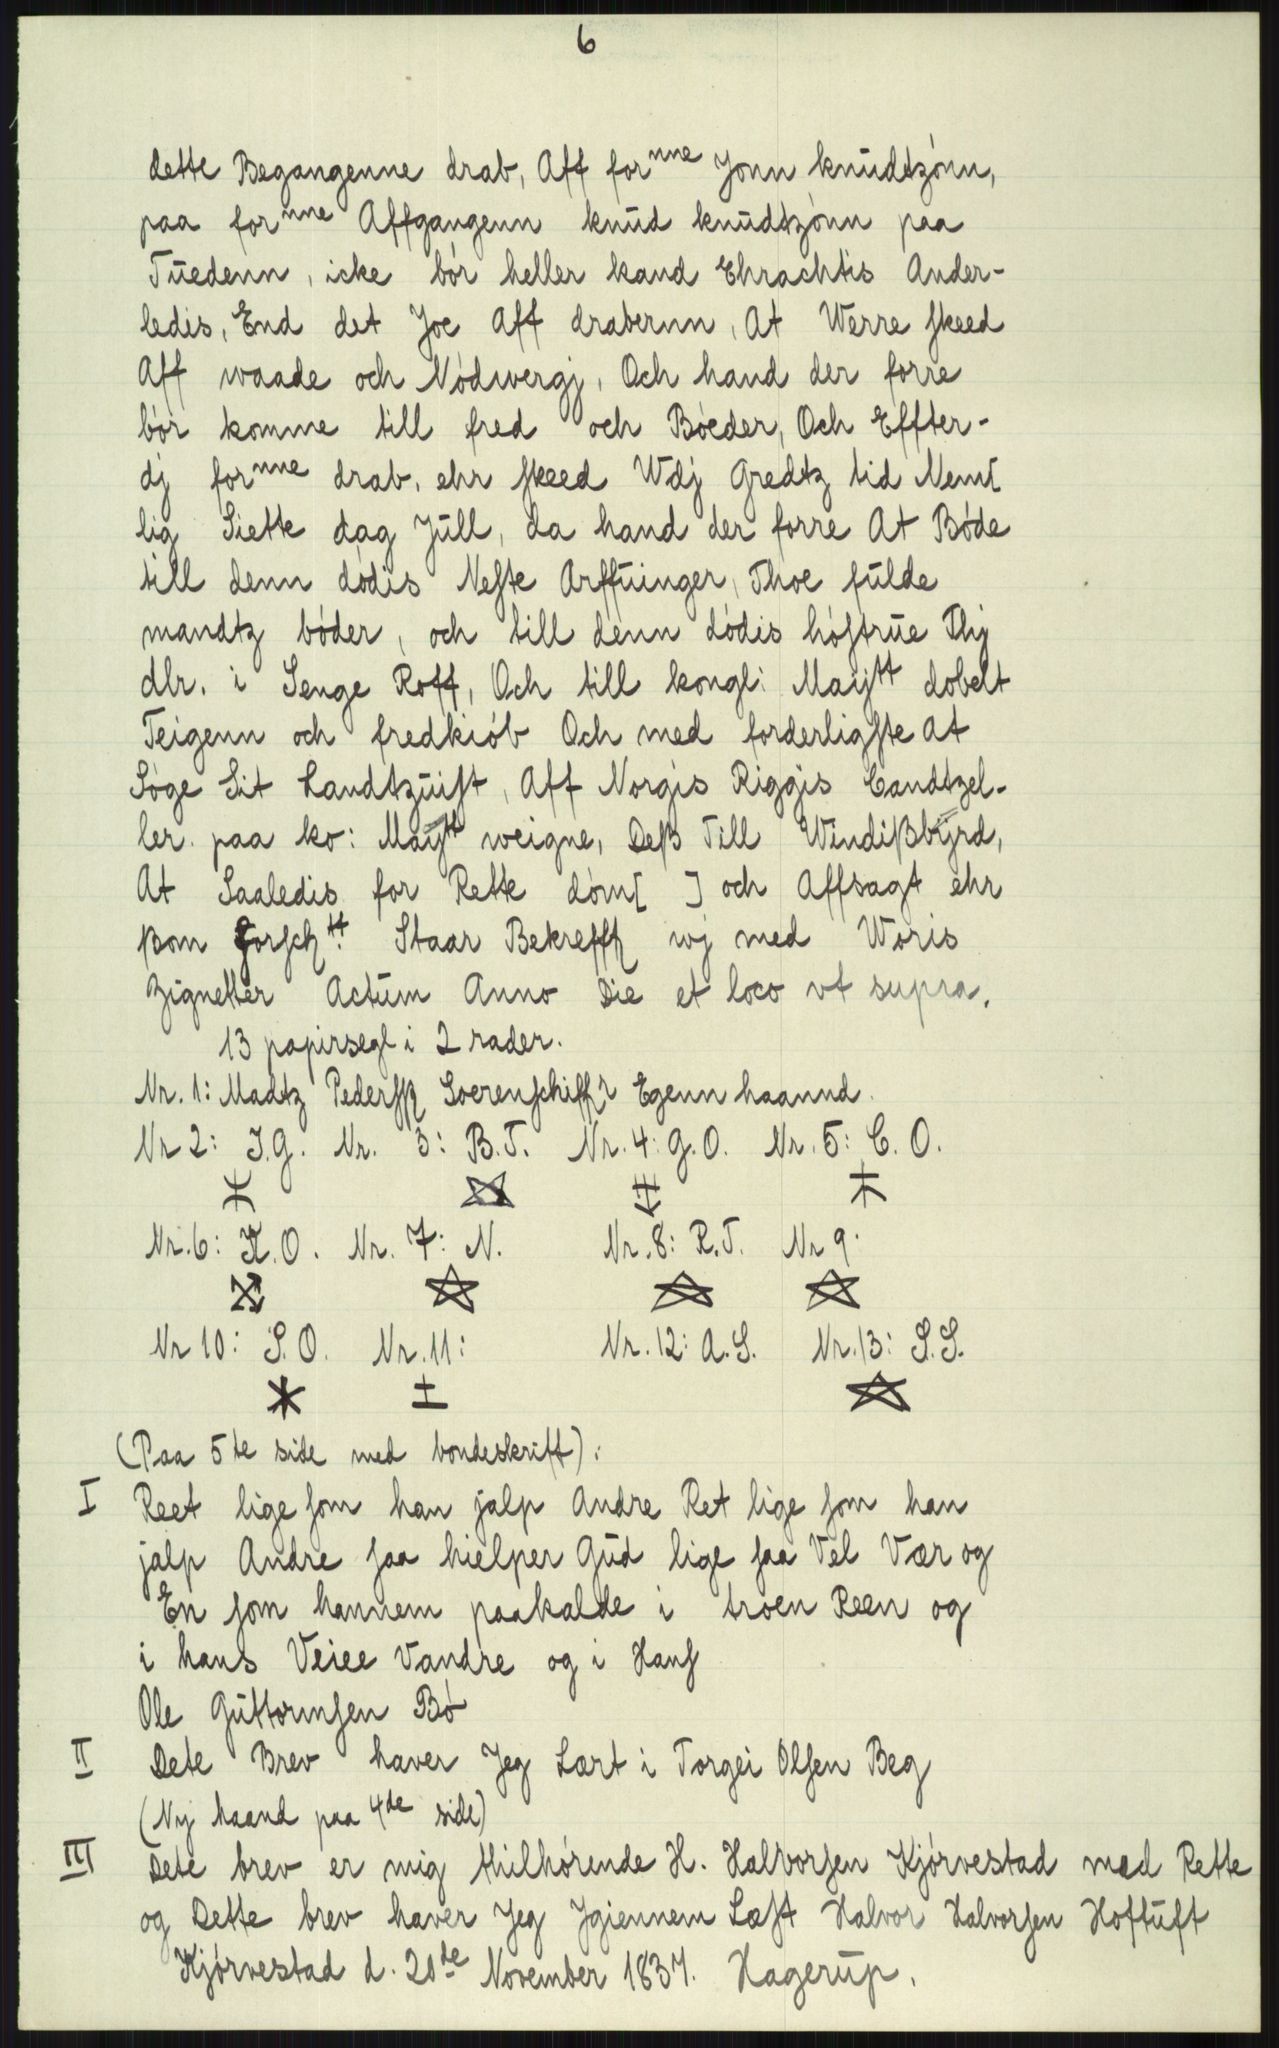 6
dette Begangenne drab, Aff for nne Jonn knudtzónn,
paa for nne Affgangenn knud knudtzónn paa
Tuedenn, icke bór heller kand Ehrachtis Ander-
ledis, End det Joe Aff draberunn, At Werre skeed
Aff waade och Nódwergj, Och hand der forre
bór komme till fred och Bóeder, Och Effter-
dj for nne drab, ehr skeed Wdj Gredtz tid Nem[
lig Siette dag Jull, da hand der forre At Bóde
till denn dódis Neste Arffuinger, Thoe fulde
mandtz bóder, och till denn dódis hóstrue Thj
dlr. i Senge Roff, Och till kongl: Maijtt dobelt
Teigenn och fredkiób Och med forderligste At
Sóge Sit Landtzuist, Aff Norgis Riggis Candtzel-
ler paa ko: Maijtt weigne, Deß Till Windißbyrd,
At Saaledis for Rette dóm[ ] och Affsagt ehr
ßom Forsch tt. Staar Bekrefft wj med Woris
Zignetter Actum Anno Die et loco vt supra.
13 papirsegl i 2 rader.
Nr. 1: Madtz Pederß Soerenschiffr Egenn haannd.
Nr 2: J.G. Nr. 3: B.T. Nr. 4: G.O. Nr. 5: C.O.
Nr. 6: K.O. Nr. 7: N. Nr. 8: R.T. Nr 9.
Nr 10: S.O. Nr. 11: Nr. 12: A.S. Nr. 13: S.S.
(Paa 5te side med bondeskrift):
I Reet lige som han jalp Andre Ret lige som han
jalp Andre saa hielper Gud lige saa Vel Vær og
En som hannem paakalde i troen Reen og
i hans Veiee Vandre og i Hans
Ole Guttormsen Bó
II Dete Brev haver Jeg Lært i Torgei Olsen Beg
(Ny haand paa 4de side)
III Dete brev er mig thilhórende H. Halvorsen Kjórvestad med Rette
og Dette brev haver Jeg Jgiennem Læst Halvor Halvorsen Hoftuft
Kjórvestad d. 20de November 1837. Hagerup.